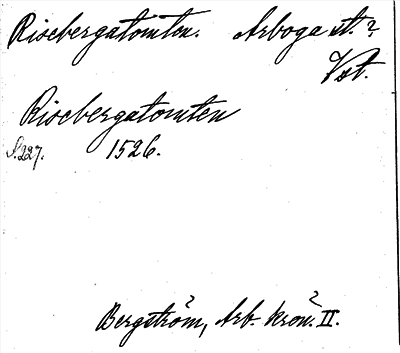 Risebergatomten. Arboga st.?
Vst.
Risebergatomten
S.227. 1526.
Bergström, Arb. krön. II.